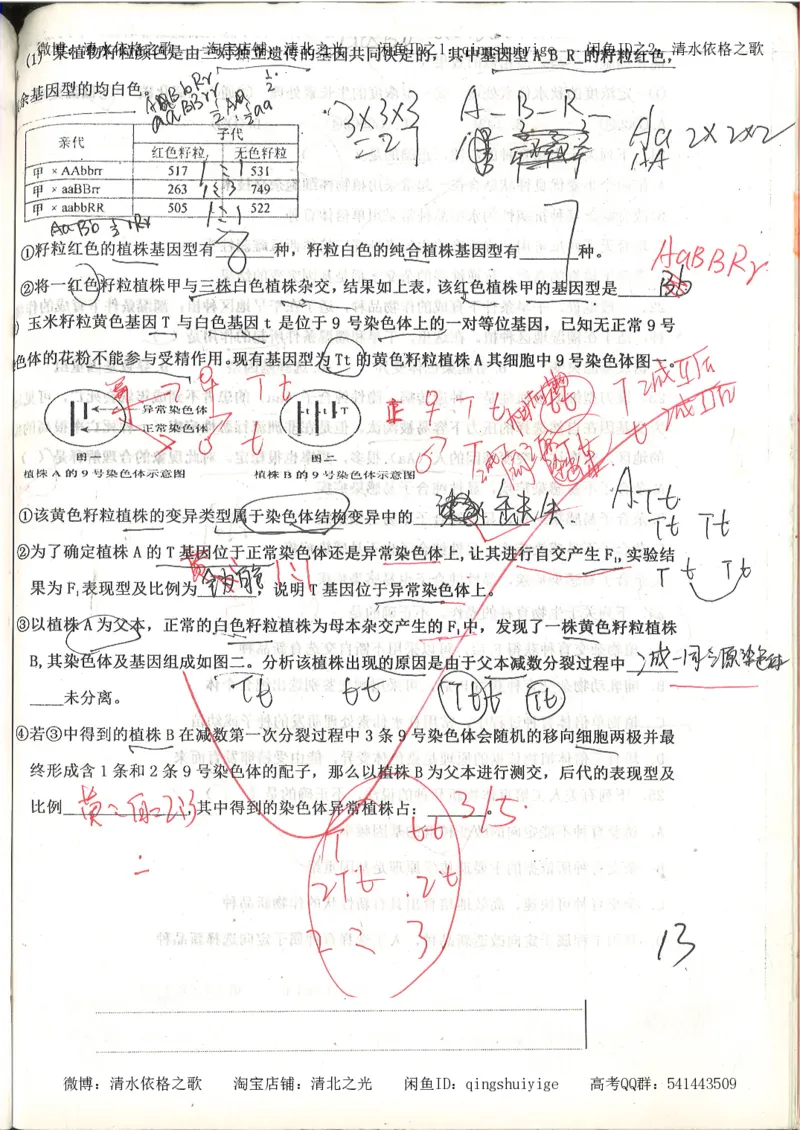 微博：清水依格之歌 淘宝店铺：清北之光 闲鱼ID之1：qingshuiyige 闲鱼ID之2：清水依格之歌
(1) 某植物籽粒颜色是由三对独立遗传的基因共同决定的，其中基因型A_B_R_的籽粒红色，
余基因型的均白色。
亲代 子代
红色籽粒 无色籽粒
甲×AAbbrr 517 531
甲×aaBBrr 263 749
甲×aabbRR 505 522
3×3×3
=27
A_B_R_
Aa 2×2×2
AA
①籽粒红色的植株基因型有 8 种，籽粒白色的纯合植株基因型有 7 种。
AaBBRr
②将一红色籽粒植株甲与三株白色植株杂交，结果如上表，该红色植株甲的基因型是
玉米籽粒黄色基因T与白色基因t是位于9号染色体上的一对等位基因，已知无正常9号
色体的花粉不能参与受精作用。现有基因型为Tt的黄色籽粒植株A其细胞中9号染色体图一。
异常染色体
正常染色体
T
图一
图二
植株A的9号染色体示意图 植株B的9号染色体示意图
♀ Tt
♂ t
①该黄色籽粒植株的变异类型属于染色体结构变异中的 缺失
②为了确定植株A的T基因位于正常染色体还是异常染色体上，让其进行自交产生F₁，实验结
果为F₁表现型及比例为 1:1 ，说明T基因位于异常染色体上。
A Tt
Tt Tt
③以植株A为父本，正常的白色籽粒植株为母本杂交产生的F₁中，发现了一株黄色籽粒植株
B，其染色体及基因组成如图二。分析该植株出现的原因是由于父本减数分裂过程中
未分离。
Tt tt Ttt Tt
④若③中得到的植株B在减数第一次分裂过程中3条9号染色体会随机的移向细胞两极并最
终形成含1条和2条9号染色体的配子，那么以植株B为父本进行测交，后代的表现型及
比例 黄:白=2:3 ，其中得到的染色体异常植株占： 3/5 。
1 tt
2Tt 2t
2:3
13
微博：清水依格之歌 淘宝店铺：清北之光 闲鱼ID：qingshuiyige 高考QQ群：541443509